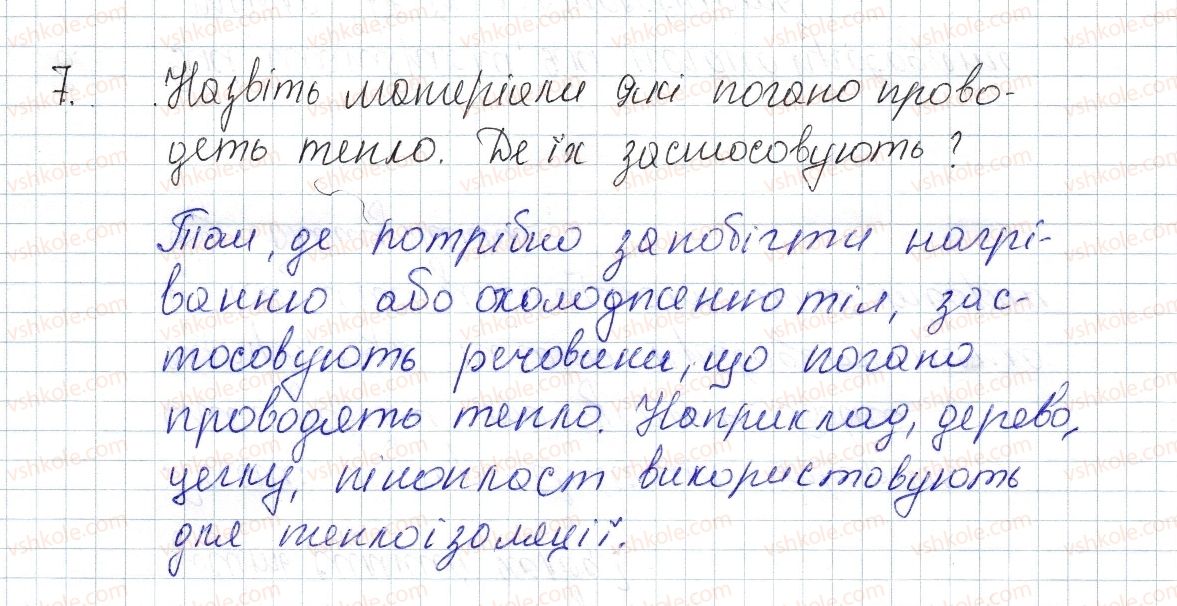 7. Назвіть матеріали які погано прово-
деть тепло. Де їх застосовують?
Там, де потрібно запобігти нагрі-
ванню або охолодженню тіл, зас-
тосовують речовини, що погано
проводять тепло. Наприклад, дерево,
цеглу, пінопласт використовують
для теплоізоляції.